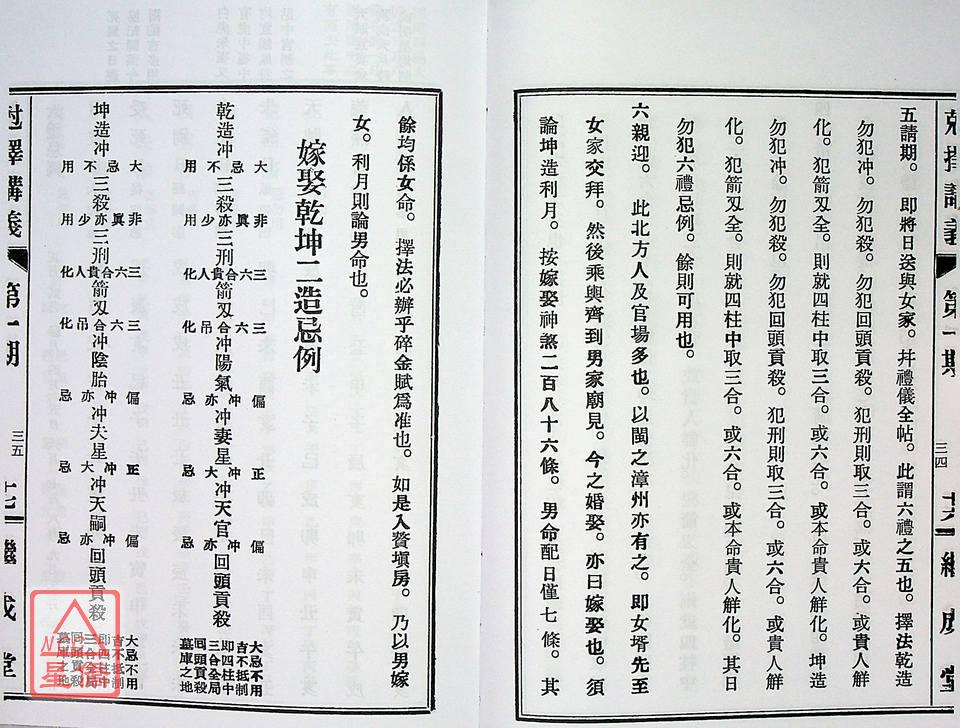 五請期。即將日送與女家。幷禮儀全帖。此謂六禮之五也。擇法乾造
勿犯冲。勿犯殺。勿犯回頭貢殺。犯刑則取三合。或六合。或貴人鮮
化。犯箭刄全。則就四柱中取三合。或六合。或本命貴人鮮化。坤造
勿犯冲。勿犯殺。勿犯回頭貢殺。犯刑則取三合。或六合。或貴人鮮
化。犯箭刄全。則就四柱中取三合。或六合。或本命貴人鮮化。其日
勿犯六禮忌例。餘則可用也。
六親迎。此北方人及官場多也。以閩之漳州亦有之。即女壻先至
女家交拜。然後乘輿齊到男家廟見。今之婚娶。亦曰嫁娶也。須
論坤造利月。按嫁娶神煞二百八十六條。男命配日僅七條。其
第一期
三四
繼成堂
餘均係女命。擇法必辦乎碎金賦爲准也。如是入贅塡房。乃以男嫁
女。利月則論男命也。
嫁娶乾坤二造忌例
乾造冲大忌不用三殺非眞亦少用三刑三六合貴人化箭刄三六合吊化冲陽氣偏冲亦忌冲妻星正冲大忌冲天官偏冲亦忌回頭貢殺大忌不用吉不抵制即四柱中三合全局回頭貢殺墓庫之地
坤造冲大忌不用三殺非眞亦少用三刑三六合貴人化箭刄三六合吊化冲陰胎偏冲亦忌冲夫星正冲大忌冲天嗣偏冲亦忌回頭貢殺大忌不用吉不抵制即四柱中三合全局回頭貢殺墓庫之地
剋擇講義
第一期
三五
繼成堂